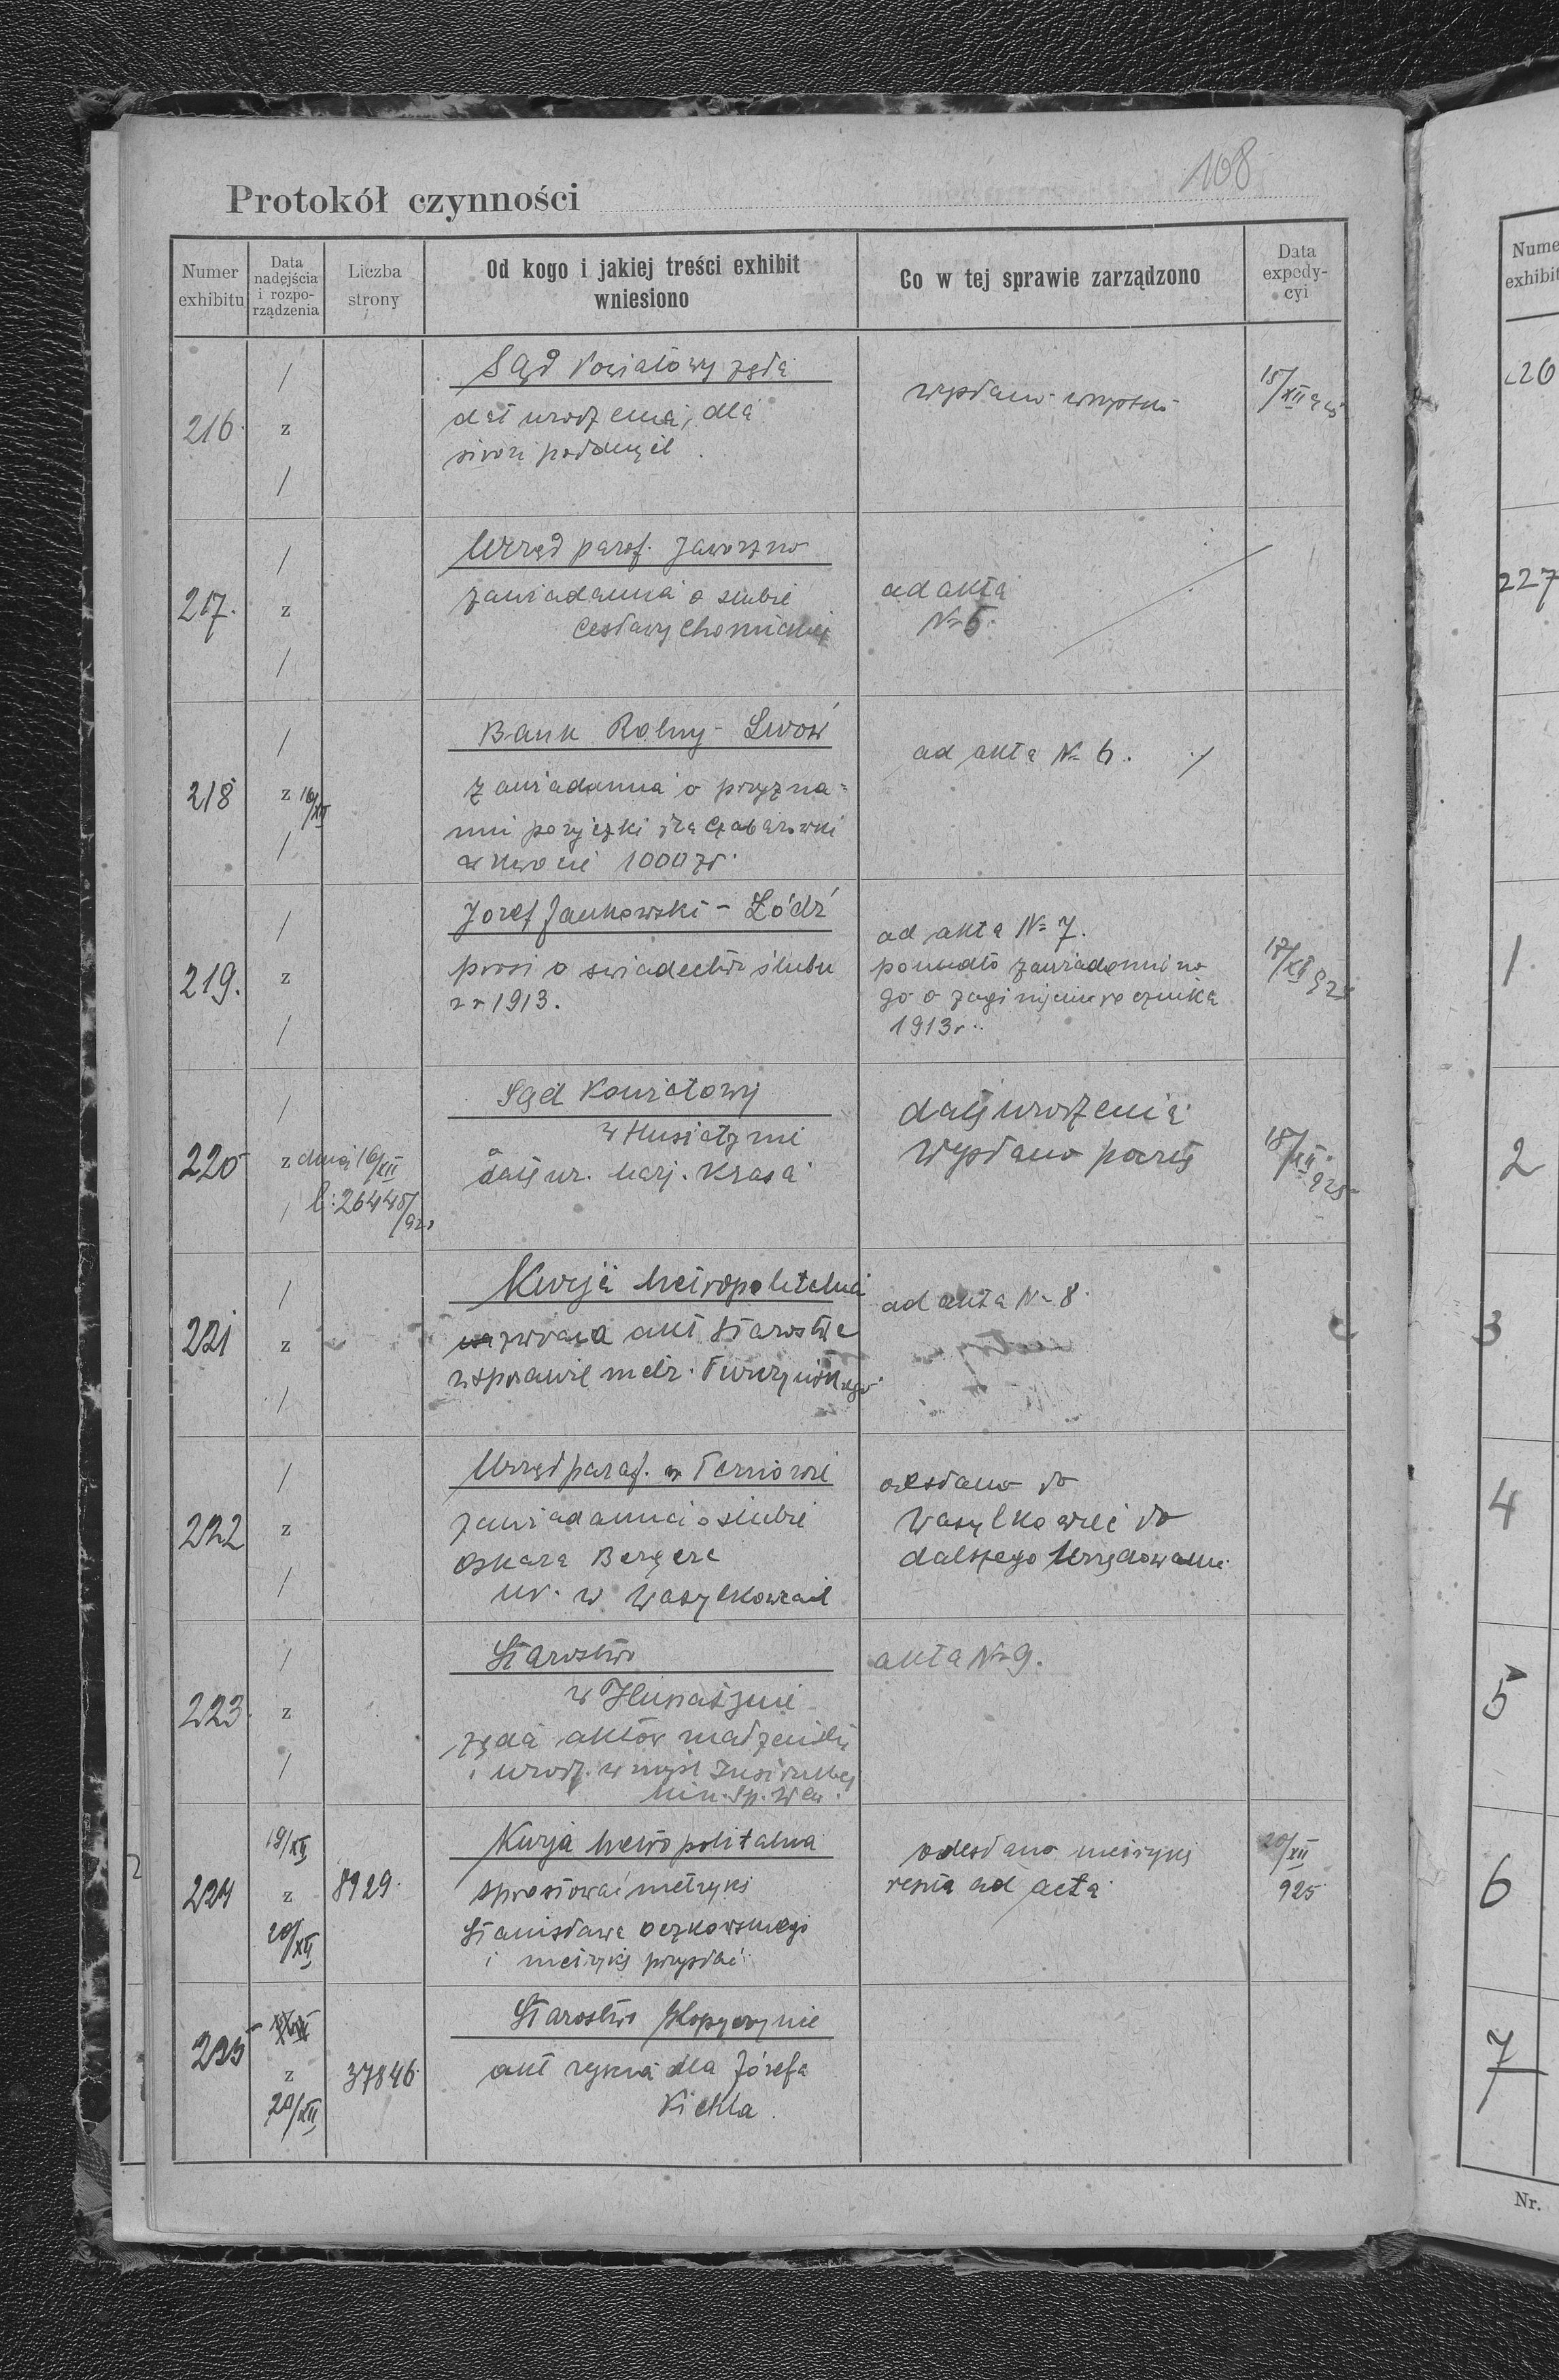 108
Protokół czynności
Numer exhibitu
Data nadejścia i rozporządzenia
Liczba strony
Od kogo i jakiej treści exhibit wniesiono
Co w tej sprawie zarządzono
Data expedycyi
216.
/
z
/
Sąd Powiatowy żąda
dat urodzenia, dla
wysłano wszystko
15/XII 925
217.
/
z
/
Urząd paraf. Jaworzno
zawiadamia o ślubie
Cesławy Chomickiej
ad akta
№ 5.
218
/
z 16/XII
/
Bank Rolny - Lwów
zawiadamia o przyzna-
niu pożyczki dla Czabarówki
w kwocie 1000 zł.
ad akta № 6.
219.
/
z
/
Jozef Jankowski - Łódź
prosi o świadectwo ślubu
z r 1913.
ad akta № 7.
zawiadomiono
go o zaginięciu rocznika
1913 r.
17/XII 925
220
/
z dnia 16/XII
/ l: 26445/925
Sąd Powiatowy
w Husiatynie
datę ur. Marj. Krasa
datę urodzenia
wysłano pocztą
18/XII 925
221
/
z
/
Kurja Metropolitalna
zwraca akt Starostwa
w sprawie metr.
ad akta № 8.
222
/
z
/
Urząd paraf. w Tarnowie
zawiadamia o ślubie
Oskara Bergera
ur. w Wasylkowcach
odesłano do
Wasylkowiec do
dalszego Urzędowania
223.
/
z
/
Starostwo
w Husiatynie
żąda aktów małżeństw
i urodz. w myśl
Min. Sp. Wew.
akta № 9.
224
19/XII
z
20/XII
8929.
Kurja Metropolitalna
sprostować metrykę
Stanisława Oczkowskiego
i metrykę przysłać
odesłano metrykę
reszta ad acta
20/XII
925
225
z
20/XII
37846.
Starostwo Kopyczynie
akt zejścia dla Józefa
Kichla.
Nume
exhibit
226
227
1
2
3
4
5
6
7
Nr.